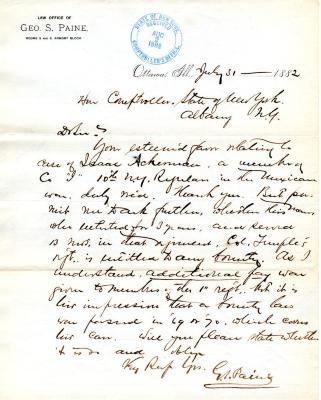 LAW OFFICE OF
GEO. S. PAINE,
ROOMS 5 AND 6 ARMORY BLOCK.
STATE OF NEW YORK
RECEIVED
AUG
1882
COMPTROLLER'S OFFICE
Ottawa, Ill., July 31 — 1882
Hon Comptroller, State of New York.
Albany N.Y.
Dr Sir:
Your esteemed favor relating to
case of Isaac Ackerman, a member of
Co I 10th N.Y. Regulars in the Mexican
war, duly rec'd. Thank you. But per-
mit me to ask further, whether this man
who enlisted for 3 years, and served
mos. in that regiment, Col. Temple's
rgt. is entitled to any bounty. As I
understand, additional pay was
given to members of the 1st regt. but it is
his impression that a bounty law
was passed in '69 or '70, which covers
his case. Will you please state whether
it is so and oblige
Very Resp Yrs.
G.S. Paine